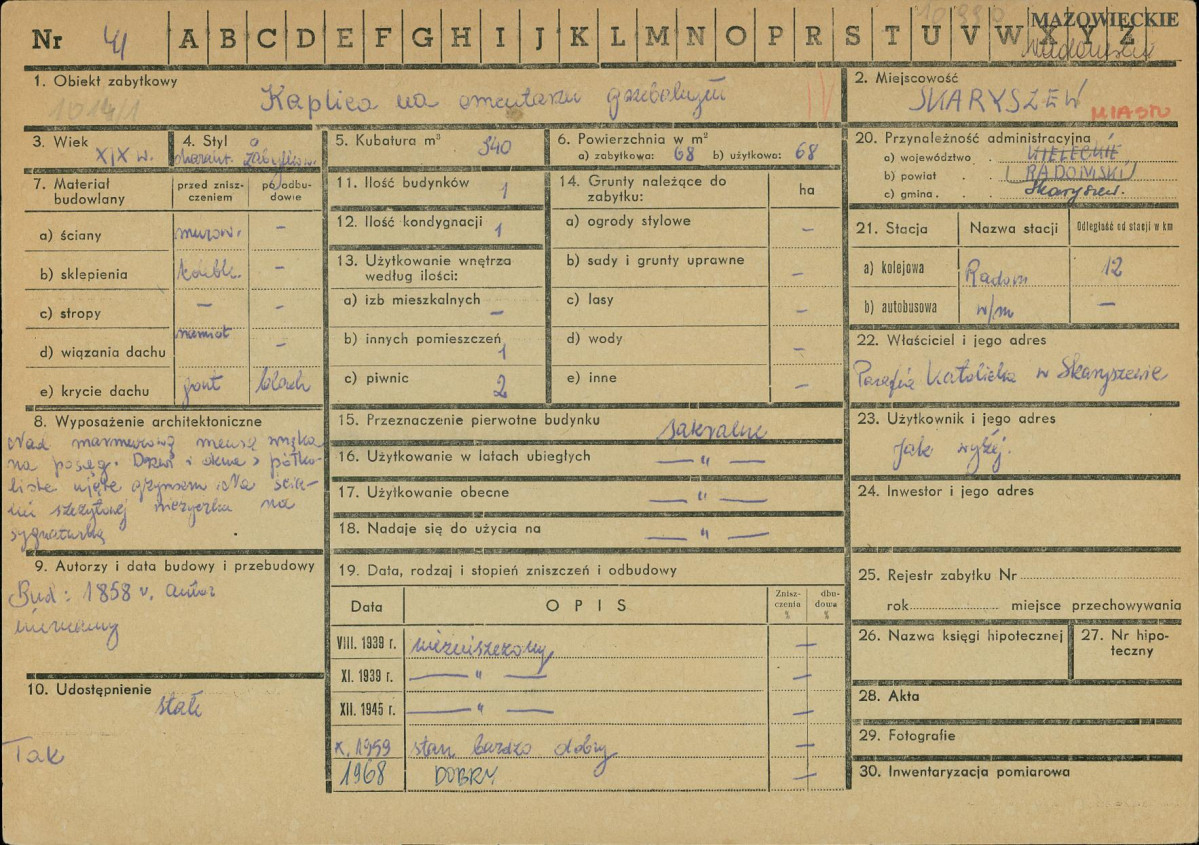 Nr 41 A B C D E F G H I J K L M N O P R S T U V W X Y Z
MAZOWIECKIE
1. Obiekt zabytkowy
1014/1
Kaplica na cmentarzu grzebalnym
IV
2. Miejscowość
SKARYSZEW
MIASTO
3. Wiek
XIX w.
4. Styl
5. Kubatura m³ 340
6. Powierzchnia w m²
a) zabytkowa: 68 b) użytkowa: 68
7. Materiał budowlany
przed zniszczeniem
po odbudowie
a) ściany murow. –
b) sklepienia –
c) stropy –
d) wiązania dachu namiot –
e) krycie dachu gont blach
8. Wyposażenie architektoniczne
Nad marmurową mensą wnęka
na posąg. Drzwi i okna półko-
liste ujęte gzymsem. Na ścia-
nie szczytowej wieżyczka na
sygnaturkę
9. Autorzy i data budowy i przebudowy
Bud: 1858 r. autor
nieznany
10. Udostępnienie
stałe
Tak
11. Ilość budynków 1
12. Ilość kondygnacji 1
13. Użytkowanie wnętrza
według ilości:
a) izb mieszkalnych –
b) innych pomieszczeń 1
c) piwnic 2
14. Grunty należące do
zabytku:
ha
a) ogrody stylowe –
b) sady i grunty uprawne –
c) lasy –
d) wody –
e) inne –
15. Przeznaczenie pierwotne budynku sakralne
16. Użytkowanie w latach ubiegłych — " —
17. Użytkowanie obecne — " —
18. Nadaje się do użycia na — " —
19. Data, rodzaj i stopień zniszczeń i odbudowy
Data OPIS Zniszczenia % dbudowa %
VIII. 1939 r. niezniszczony –
XI. 1939 r. — " — –
XII. 1945 r. — " — –
X. 1959 stan bardzo dobry –
1968 DOBRY –
20. Przynależność administracyjna
a) województwo . KIELECKIE
b) powiat . . RADOMSKI
c) gmina . . Skaryszew.
21. Stacja Nazwa stacji Odległość od stacji w km
a) kolejowa Radom 12
b) autobusowa w/m –
22. Właściciel i jego adres
Parafia Katolicka w Skaryszewie
23. Użytkownik i jego adres
Jak wyżej.
24. Inwestor i jego adres
25. Rejestr zabytku Nr
rok miejsce przechowywania
26. Nazwa księgi hipotecznej
27. Nr hipoteczny
28. Akta
29. Fotografie
30. Inwentaryzacja pomiarowa